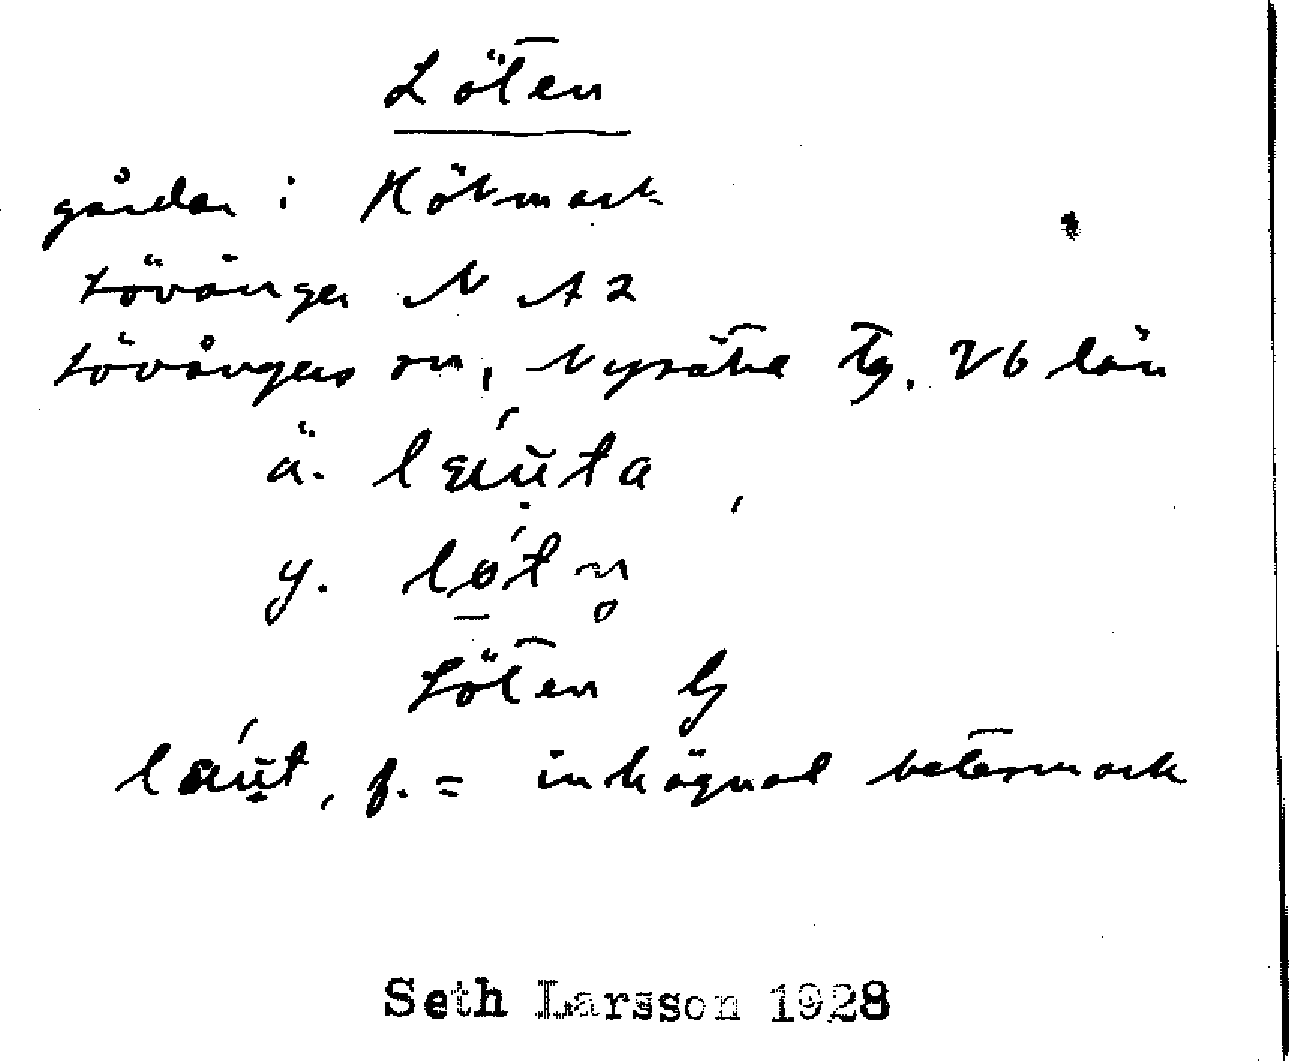 Löten
gårdar i Kökmark
Lövånger N A 2
Lövångers sn, Nysätra tg. Vb län
ä. lɛu̯ta
y. løtn̥
Löten G
lau̯t, f. = inhägnad betesmark
Seth Larsson 1928